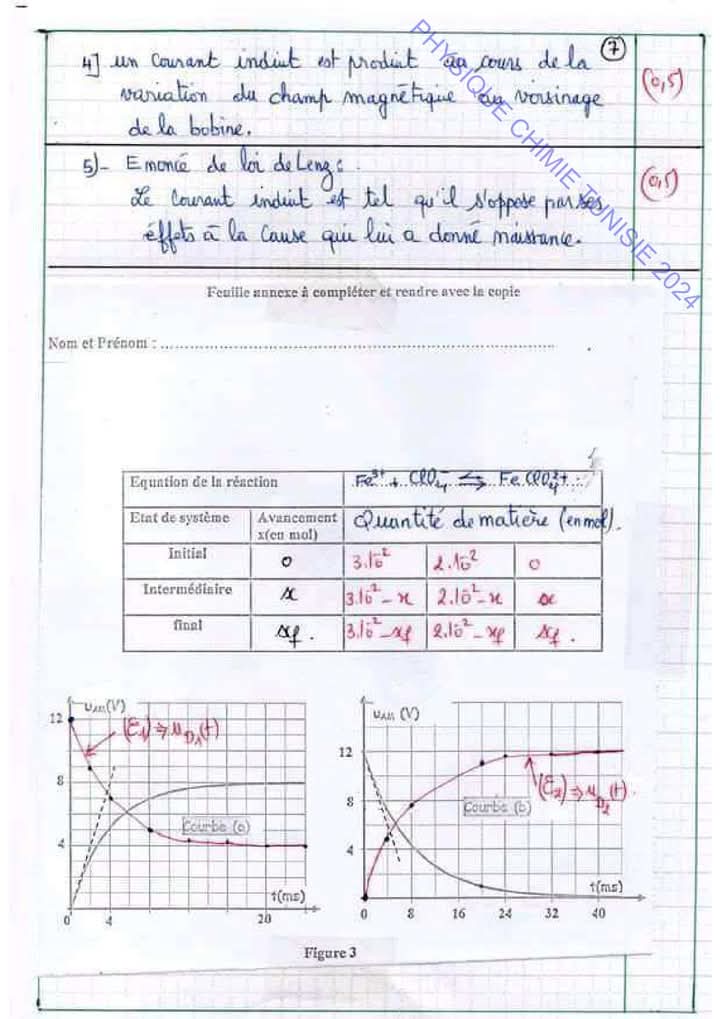 7
4] un courant induit est produit au cours de la
variation du champ magnétique au voisinage
de la bobine.
(0,5)
5)- Enoncé de loi de Lenz :
Le courant induit est tel qu'il s'oppose par ses
éffets à la cause qui lui a donné naissance.
(0,5)
PHYSIQUE CHIMIE TUNISIE 2024
Feuille annexe à compléter et rendre avec la copie
Nom et Prénom : ..........
Equation de la réaction Fe³⁺ + ClO₄⁻ ⇌ Fe ClO₄²⁺
Etat de système Avancement x(en mol) Quantité de matière (en mol).
Initial 0 3.10⁻² 2.10⁻² 0
Intermédiaire x 3.10⁻² - x 2.10⁻² - x x
final xf. 3.10⁻² - xf 2.10⁻² - xf xf.
u_AM(V)
12
8
4
0 4 20
t(ms)
(E₁) ⇒ u_D₁(t)
Courbe (a)
u_AM (V)
12
8
4
0 8 16 24 32 40
t(ms)
(E₂) ⇒ u_D₂(t).
Courbe (b)
Figure 3